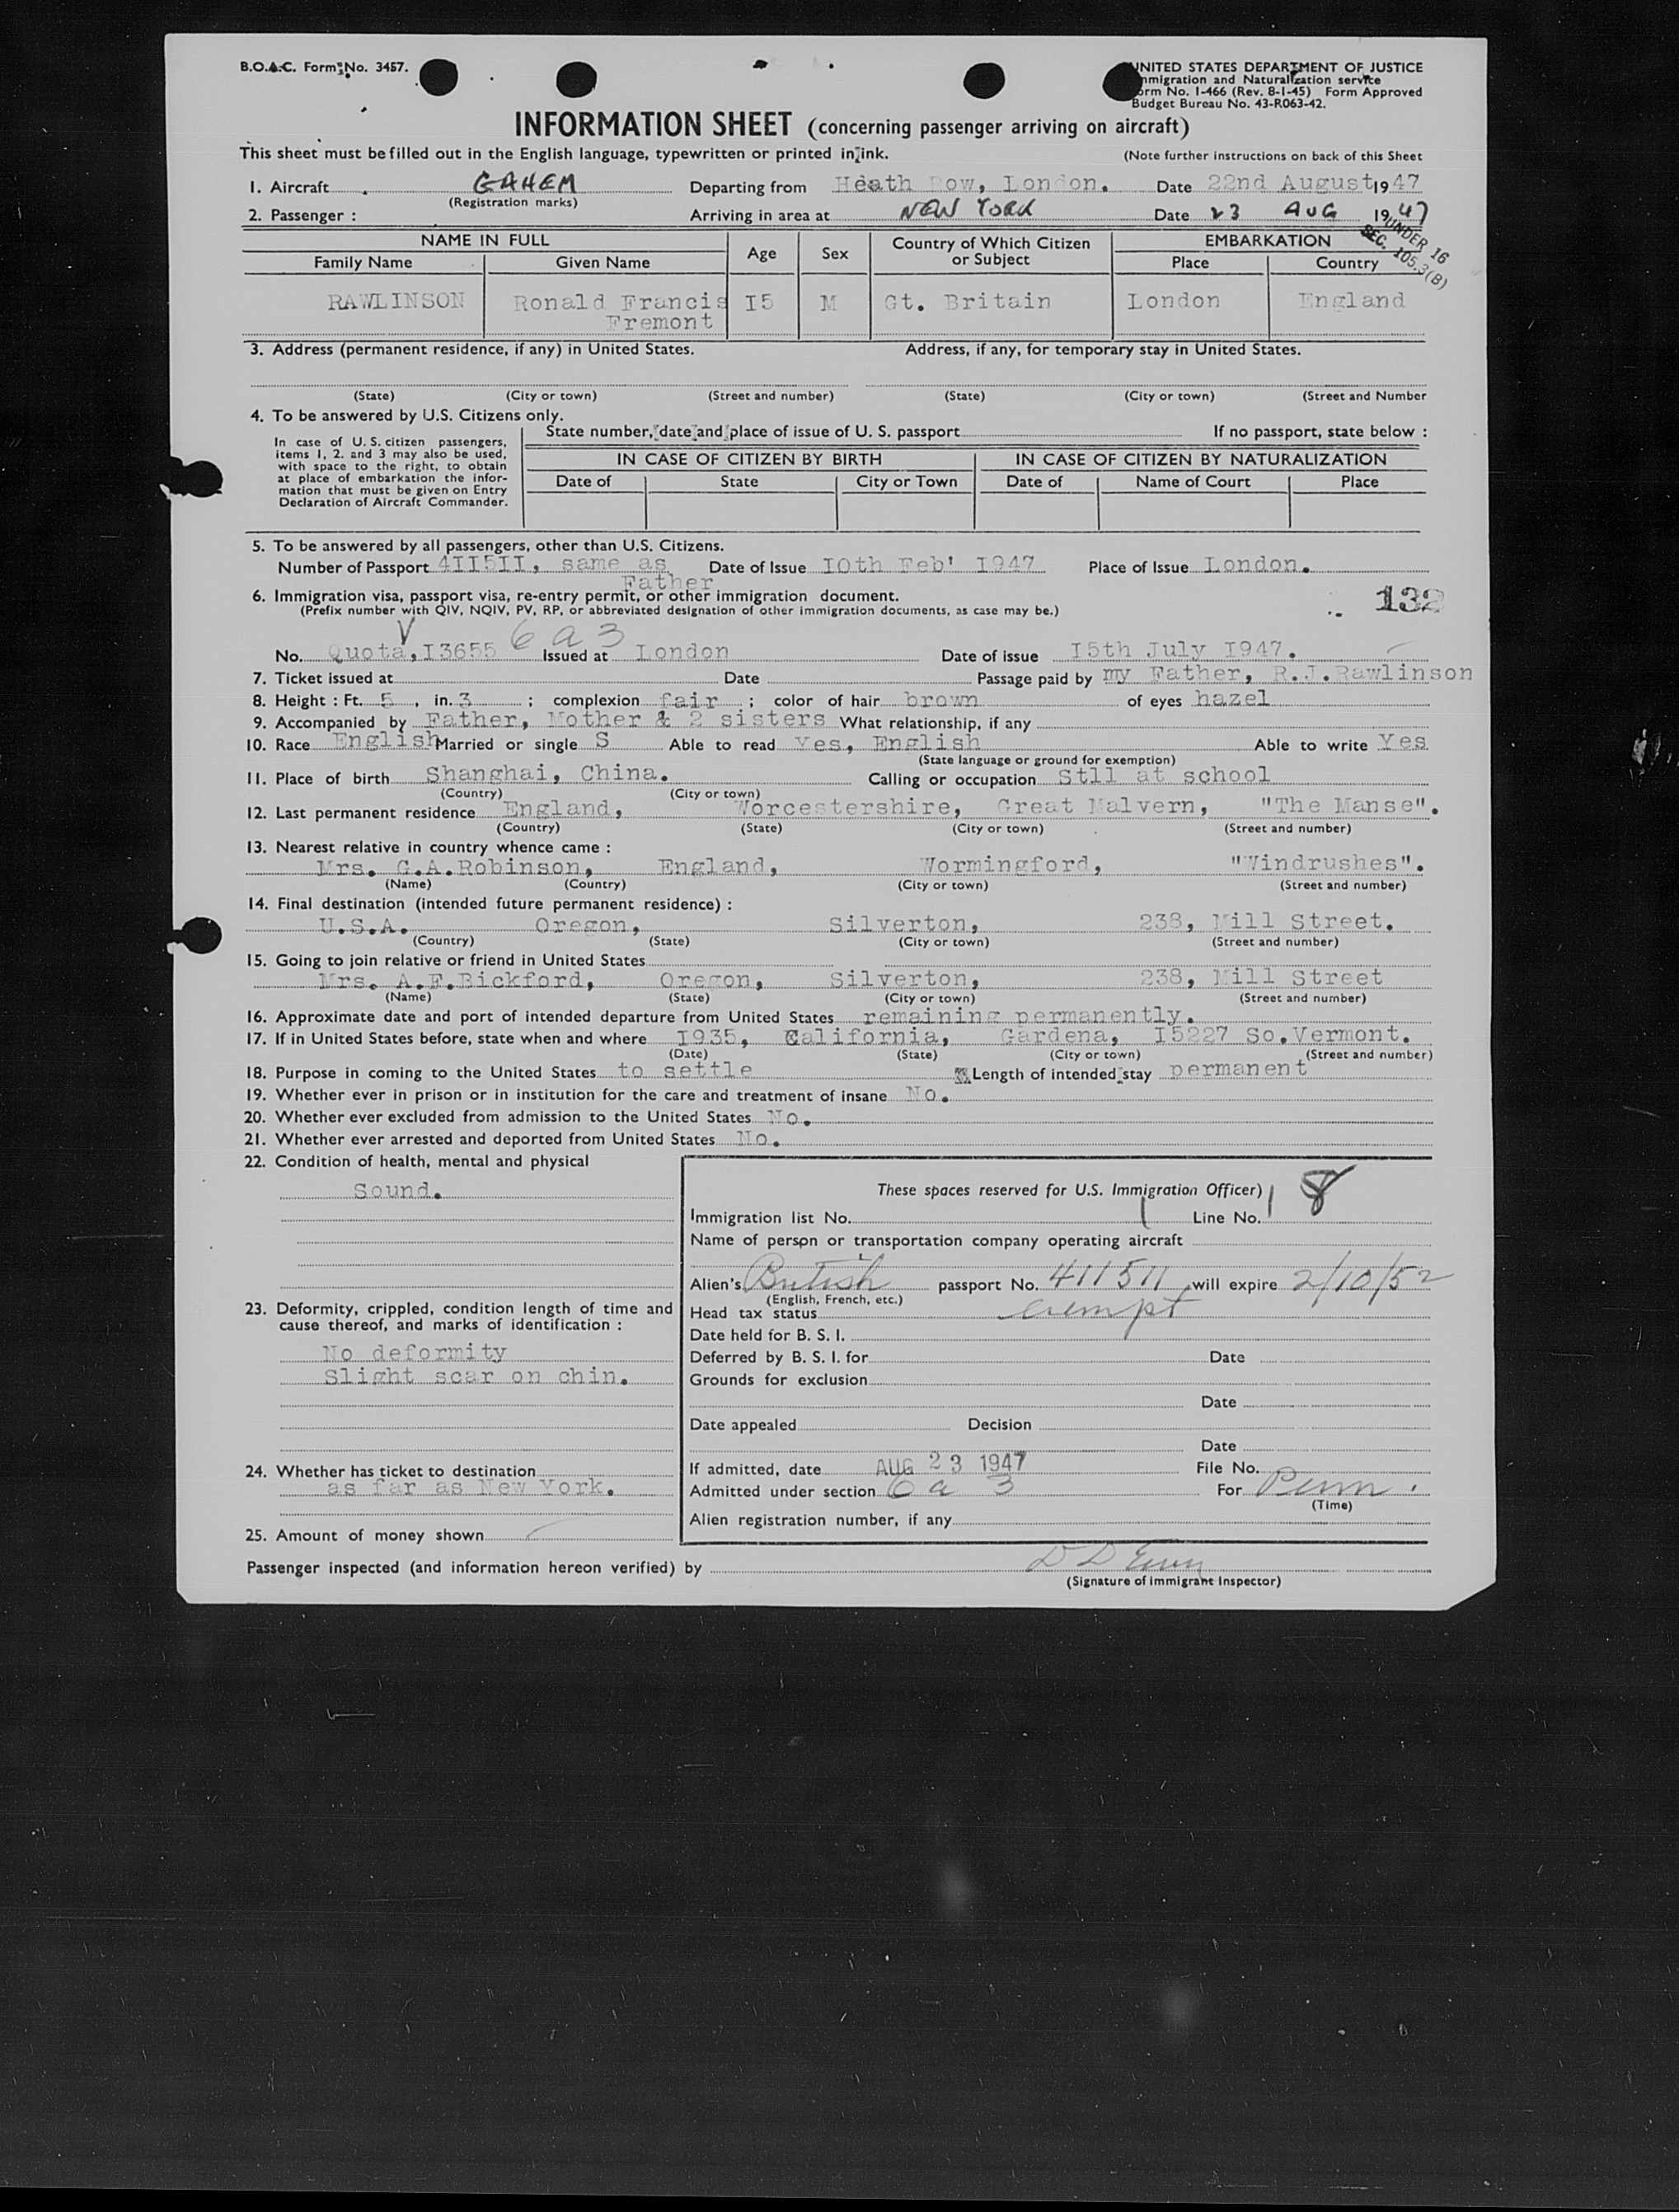 B.O.A.C. Form No. 3457.
UNITED STATES DEPARTMENT OF JUSTICE
Immigration and Naturalization service
Form No. I-466 (Rev. 8-1-45) Form Approved
Budget Bureau No. 43-R063-42.
INFORMATION SHEET (concerning passenger arriving on aircraft)
This sheet must be filled out in the English language, typewritten or printed in ink. (Note further instructions on back of this Sheet
1. Aircraft GAHEM Departing from Heath Row, London. Date 22nd August 1947
(Registration marks)
2. Passenger : Arriving in area at NEW YORK Date 23 AUG 1947
UNDER 16
SEC. 105.3(B)
NAME IN FULL Age Sex Country of Which Citizen or Subject EMBARKATION
Family Name Given Name Place Country
RAWLINSON Ronald Francis I5 M Gt. Britain London England
Fremont
3. Address (permanent residence, if any) in United States. Address, if any, for temporary stay in United States.
(State) (City or town) (Street and number) (State) (City or town) (Street and Number
4. To be answered by U.S. Citizens only.
In case of U. S. citizen passengers,
items 1, 2. and 3 may also be used,
with space to the right, to obtain
at place of embarkation the infor-
mation that must be given on Entry
Declaration of Aircraft Commander.
State number, date and place of issue of U. S. passport If no passport, state below :
IN CASE OF CITIZEN BY BIRTH IN CASE OF CITIZEN BY NATURALIZATION
Date of State City or Town Date of Name of Court Place
5. To be answered by all passengers, other than U.S. Citizens.
Number of Passport 4II5II, same as Date of Issue IOth Feb' I947 Place of Issue London.
Father
6. Immigration visa, passport visa, re-entry permit, or other immigration document.
(Prefix number with QIV, NQIV, PV, RP, or abbreviated designation of other immigration documents, as case may be.)
132
V 6 a 3
No. Quota, I3655 Issued at London Date of issue I5th July I947.
7. Ticket issued at Date Passage paid by my Father, R.J.Rawlinson
8. Height : Ft. 5 , in. 3 ; complexion fair ; color of hair brown of eyes hazel
9. Accompanied by Father, Mother & 2 sisters What relationship, if any
10. Race English Married or single S Able to read Yes, English Able to write Yes
(State language or ground for exemption)
11. Place of birth Shanghai, China. Calling or occupation Stll at school
(Country) (City or town)
12. Last permanent residence England, Worcestershire, Great Malvern, "The Manse".
(Country) (State) (City or town) (Street and number)
13. Nearest relative in country whence came :
Mrs. G.A.Robinson, England, Wormingford, "Windrushes".
(Name) (Country) (City or town) (Street and number)
14. Final destination (intended future permanent residence) :
U.S.A. Oregon, Silverton, 238, Mill Street.
(Country) (State) (City or town) (Street and number)
15. Going to join relative or friend in United States
Mrs. A.F.Bickford, Oregon, Silverton, 238, Mill Street
(Name) (State) (City or town) (Street and number)
16. Approximate date and port of intended departure from United States remaining permanently.
17. If in United States before, state when and where I935, California, Gardena, I5227 So.Vermont.
(Date) (State) (City or town) (Street and number)
18. Purpose in coming to the United States to settle Length of intended stay permanent
19. Whether ever in prison or in institution for the care and treatment of insane No.
20. Whether ever excluded from admission to the United States No.
21. Whether ever arrested and deported from United States No.
22. Condition of health, mental and physical
Sound.
23. Deformity, crippled, condition length of time and
cause thereof, and marks of identification :
No deformity
Slight scar on chin.
24. Whether has ticket to destination
as far as New York.
25. Amount of money shown
These spaces reserved for U.S. Immigration Officer)
Immigration list No. 1 Line No. 8
Name of person or transportation company operating aircraft
Alien's British passport No. 411511 will expire 2/10/52
(English, French, etc.)
Head tax status exempt
Date held for B. S. I.
Deferred by B. S. I. for Date
Grounds for exclusion
Date
Date appealed Decision
Date
If admitted, date AUG 23 1947 File No.
Admitted under section 6 a 3 For Perm.
(Time)
Alien registration number, if any
Passenger inspected (and information hereon verified) by D D
(Signature of Immigrant Inspector)